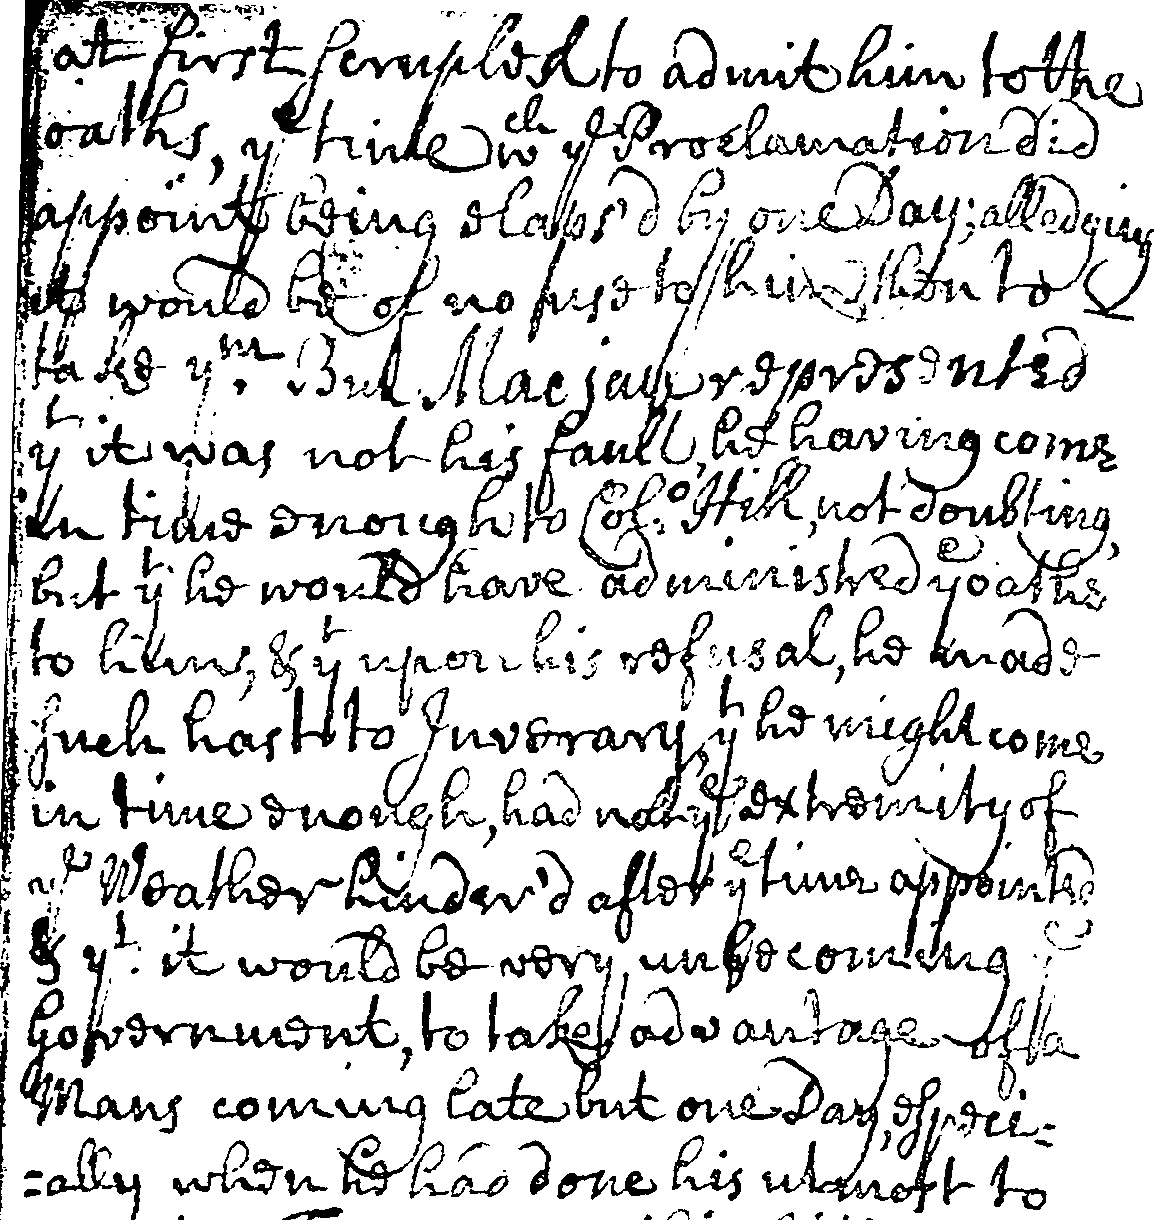 at first scrupled to admit him to the
oaths, yᵉ time wᶜʰ yᵉ Proclamation did
appoint being elaps'd by one Day; alledging
it would be of no use to him then to
take yᵐ. But Macjan represented
yᵗ it was not his fault, he having come
in time enough to Colˡ.ᵒ Hill, not doubting,
but yᵗ he would have administred yᵉ oaths
to him, & yᵗ upon his refusal, he made
such hast to Inverary, yᵗ he might come
in time enough, had not yᵉ extremity of
yᵉ Weather hinder'd after yᵉ time appointed
& yᵗ. it would be very unbecoming yᵉ
Government, to take advantage of a
Mans coming late but one Day, especi=
=ally when he had done his utmost to